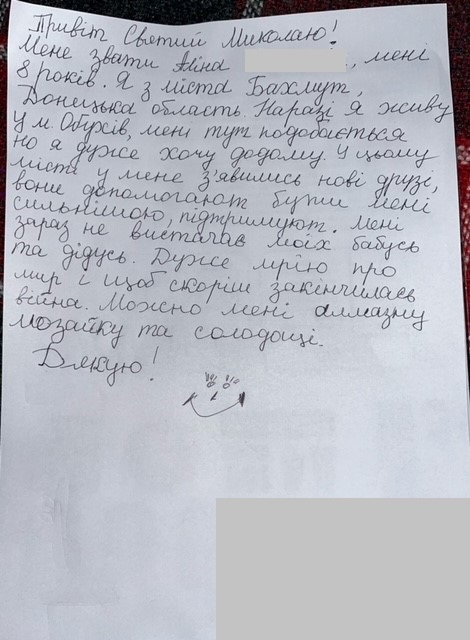 Привіт Святий Миколаю!
Мене звати Аліна , мені
8 років. Я з міста Бахмут,
Донецька область. Наразі я живу
у м. Обухів, мені тут подобається
но я дуже хочу додому. У цьому
місті у мене з'явились нові друзі,
вони допомогают бути мені
сильнішою, підтримуют. Мені
зараз не вистачає моїх бабусь
та дідусь. Дуже мрію про
мир і щоб скоріш закінчилась
війна. Можно мені алмазну
мозайку та солодощі.
Дякую!